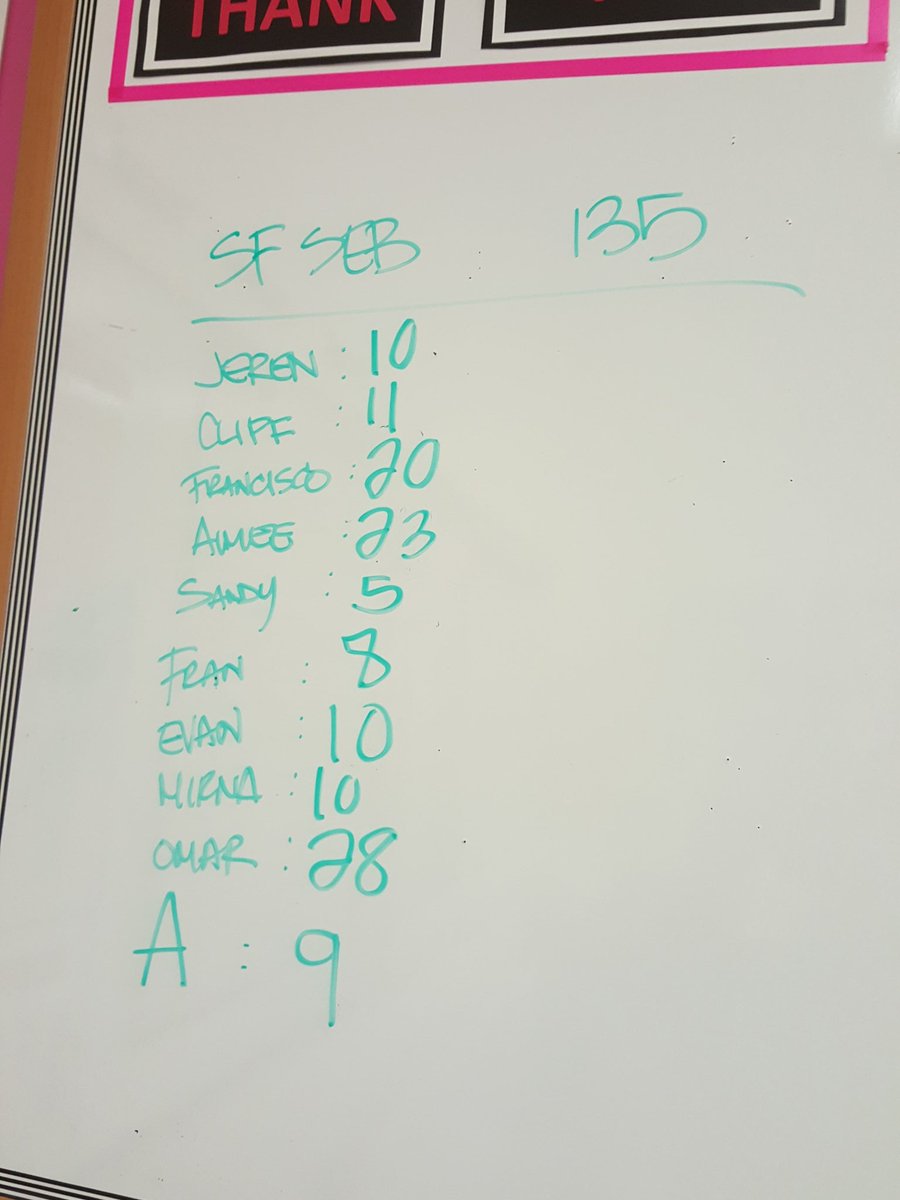 THANK
SF SEB 135
JEREN : 10
CLIFF : 11
FRANCISCO : 20
AIMEE : 23
SANDY : 5
FRAN : 8
EVAN : 10
MIRNA : 10
OMAR : 28
A : 9